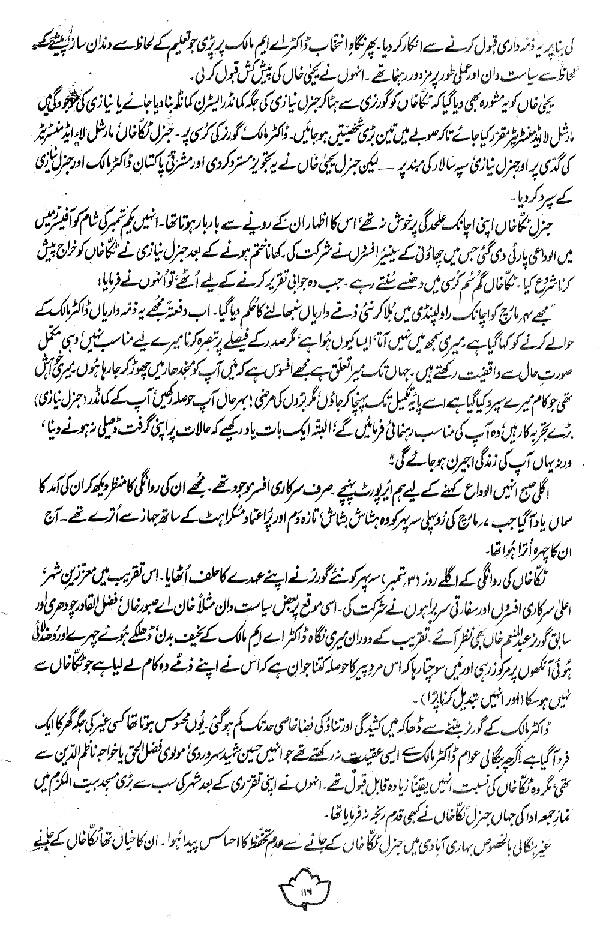 کی بنا پر یہ ذمّہ داری قبول کرنے سے انکار کر دیا۔ پھر نگاہِ انتخاب ڈاکٹر اے ایم مالک پر پڑی جو تعلیم کے لحاظ سے دندان ساز، پیشے کے
لحاظ سے سیاست دان اور عملی طور پر مزدور رہنما تھے۔ انہوں نے یحییٰ خاں کی پیش کش قبول کر لی۔
یحییٰ خاں کو یہ مشورہ بھی دیا گیا کہ ٹکّا خاں کو گورنری سے ہٹا کر جنرل نیازی کی جگہ کمانڈر ایسٹرن کمانڈ بنا دیا جائے یا نیازی کی موجودگی میں
مارشل لا ایڈمنسٹریٹر مقرر کیا جائے تاکہ صوبے میں تین بڑی شخصیتیں ہو جائیں۔ ڈاکٹر مالک گورنر کی کرسی پر۔ جنرل ٹکّا خاں مارشل لا ایڈمنسٹریٹر
کی گدّی پر اور جنرل نیازی سپہ سالار کی مسند پر ۔۔۔ لیکن جنرل یحییٰ خاں نے یہ تجویز مسترد کر دی اور مشرقی پاکستان ڈاکٹر مالک اور جنرل نیازی
کے سپرد کر دیا۔
جنرل ٹکّا خاں اپنی اچانک علٰحدگی پر خوش نہ تھے، اس کا اظہار ان کے رویے سے بار بار ہوتا تھا۔ انہیں یکم ستمبر کی شام کو آفیسرز میس
میں الوداعی پارٹی دی گئی جس میں چھاؤنی کے سینئر افسروں نے شرکت کی۔ کھانا ختم ہونے کے بعد جنرل نیازی نے ٹکّا خاں کو خراج پیش
کرنا شروع کیا۔ ٹکّا خاں گم سُم کرسی میں دھنسے سنتے رہے۔ جب وہ جوابی تقریر کرنے کے لیے اُٹھے، تو اُنہوں نے فرمایا:
"مجھے ۴ مارچ کو اچانک راولپنڈی میں بلا کر نئی ذمّے داریاں سنبھالنے کا حکم دیا گیا۔ اب دفعتہً مجھے یہ ذمّہ داریاں ڈاکٹر مالک کے
حوالے کرنے کو کہا گیا ہے، میری سمجھ میں نہیں آتا، ایسا کیوں ہوا ہے، مگر صدر کے فیصلے پر تبصرہ کرنا میرے لیے مناسب نہیں، وہی مکمل
صورتِ حال سے واقفیت رکھتے ہیں۔ جہاں تک میرا تعلق ہے مجھے افسوس ہے کہ میں آپ کو منجدھار میں چھوڑ کر جا رہا ہوں۔ میری خواہش
تھی جو کام میرے سپرد کیا گیا ہے اسے پایۂ تکمیل تک پہنچا کر جاؤں، مگر بڑوں کی مرضی، بہرحال آپ حوصلہ رکھیں، آپ کے کمانڈر (جنرل نیازی)
بڑے تجربہ کار ہیں، وہ آپ کی مناسب رہنمائی فرمائیں گے، البتہ ایک بات یاد رکھیے کہ حالات پر اپنی گرفت ڈھیلی نہ ہونے دینا،
ورنہ یہاں آپ کی زندگی اجیرن ہو جائے گی۔"
اگلی صبح انہیں الوداع کہنے کے لیے ہم ایئرپورٹ پہنچے۔ صرف سرکاری افسر موجود تھے۔ مجھے ان کی روانگی کا منظر دیکھ کر ان کی آمد کا
سماں یاد آ گیا جب ۷ مارچ کی روپہلی سہ پہر کو وہ ہشاش بشاش، تازہ دم اور پُراعتماد مسکراہٹ کے ساتھ جہاز سے اُترے تھے۔ آج
ان کا چہرہ اُترا ہوا تھا۔
ٹکّا خاں کی روانگی کے اگلے روز (۳ ستمبر) سہ پہر کو نئے گورنر نے اپنے عہدے کا حلف اُٹھایا۔ اس تقریب میں معززینِ شہر،
اعلیٰ سرکاری افسروں اور سفارتی سربراہوں نے شرکت کی۔ اسی موقع پر بعض سیاست دان مثلاً خان اے صبور خاں، فضل القادر چودھری اور
سابق گورنر عبدالمنعم خاں بھی نظر آئے۔ تقریب کے دوران میری نگاہ ڈاکٹر اے ایم مالک کے نحیف بدن، ڈھلکے ہوئے چہرے اور دُھندلائی
ہوئی آنکھوں پر مرکوز رہی اور میں سوچتا رہا کہ اس مردِ پیر کا حوصلہ کتنا جوان ہے کہ اس نے اپنے ذمّے وہ کام لے لیا ہے جو ٹکّا خاں سے
نہیں ہو سکا (اور انہیں تبدیل کرنا پڑا)۔
ڈاکٹر مالک کے گورنر بننے سے ڈھاکہ میں کشیدگی اور تناؤ کی فضا خاصی حد تک کم ہو گئی۔ یوں محسوس ہوتا تھا کسی غیر کی جگہ گھر کا ایک
فرد آ گیا ہے، اگرچہ بنگالی عوام ڈاکٹر مالک سے ایسی عقیدت نہ رکھتے تھے جو انہیں حسین شہید سہروردی، مولوی فضل الحق یا خواجہ ناظم الدین سے
تھی، مگر وہ ٹکّا خاں کی نسبت انہیں یقیناً زیادہ قابلِ قبول تھے۔ انہوں نے اپنی تقرری کے بعد شہر کی سب سے بڑی مسجد بیت المکرم میں
نمازِ جمعہ ادا کی جہاں جنرل ٹکّا خاں نے کبھی قدم رنجہ نہ فرمایا تھا۔
غیر بنگالی بالخصوص بہاری آبادی میں جنرل ٹکّا خاں کے جانے سے عدمِ تحفظ کا احساس پیدا ہوا۔ ان کا خیال تھا ٹکّا خاں کے چلے
۱۱۶